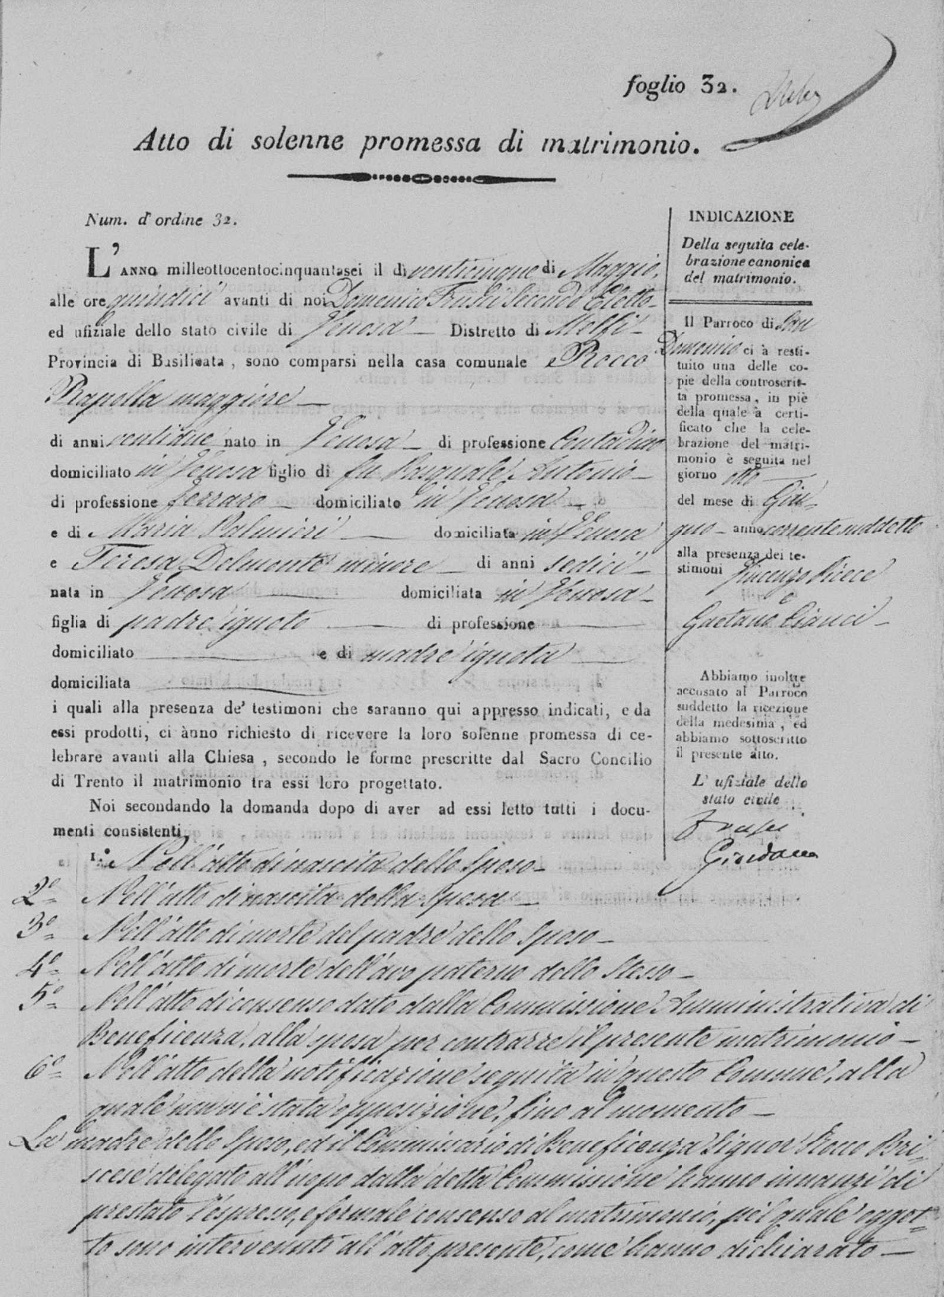 foglio 32.
Atto di solenne promessa di matrimonio.
Num. d'ordine 32.
L'ANNO milleottocentocinquantasei il dì venticinque di Maggio,
alle ore quindici avanti di noi Domenico Frusci Secondo Eletto
ed ufiziale dello stato civile di Venosa Distretto di Melfi
Provincia di Basilicata, sono comparsi nella casa comunale Rocco
Rapolla maggiore
di anni ventidue nato in Venosa di professione Contadino
domiciliato in Venosa figlio di fu Pasquale Antonio
di professione ferraro domiciliato in Venosa
e di Maria Palmieri domiciliata in Venosa
e Teresa Delmonte minore di anni sedici
nata in Venosa domiciliata in Venosa
figlia di padre ignoto di professione
domiciliato e di madre ignota
domiciliata
i quali alla presenza de' testimoni che saranno qui appresso indicati, e da
essi prodotti, ci ànno richiesto di ricevere la loro solenne promessa di ce-
lebrare avanti alla Chiesa, secondo le forme prescritte dal Sacro Concilio
di Trento il matrimonio tra essi loro progettato.
Noi secondando la domanda dopo di aver ad essi letto tutti i docu-
menti consistenti
1.° Nell'atto di nascita dello Sposo
2° Nell'atto di nascita della Sposa
3° Nell'atto di morte del padre dello Sposo
4° Nell'atto di morte dell'avo paterno dello Stesso
5° Nell'atto di consenso dato dalla Commissione Amministrativa di
Beneficenza, alla sposa per contrarre il presente matrimonio
6° Nell'atto della notificazione seguita in questo Comune, alla
quale non vi è stata opposizione, fino al momento
La madre dello Sposo, ed il Commissario di Beneficenza Signor Rocco Bri-
scese delegato all'uopo dalla detta Commissione hanno innanzi di
prestato l'espresso, e formale consenso al matrimonio, pel quale ogget-
to sono intervenuti all'atto presente, come hanno dichiarato
INDICAZIONE
Della seguita cele-
brazione canonica
del matrimonio.
Il Parroco di San
Domenico ci à resti-
tuito una delle co-
pie della controscrit-
ta promessa, in piè
della quale à certi-
ficato che la cele-
brazione del matri-
monio è seguita nel
giorno otto
del mese di Giu
gno anno corrente suddetto
alla presenza dei te-
stimoni Vincenzo Picece
e
Gaetano Cianci
Abbiamo inoltre
accusato al Parroco
suddetto la ricezione
della medesima, ed
abbiamo sottoscritto
il presente atto.
L' ufiziale dello
stato civile
Frusci
Giordano